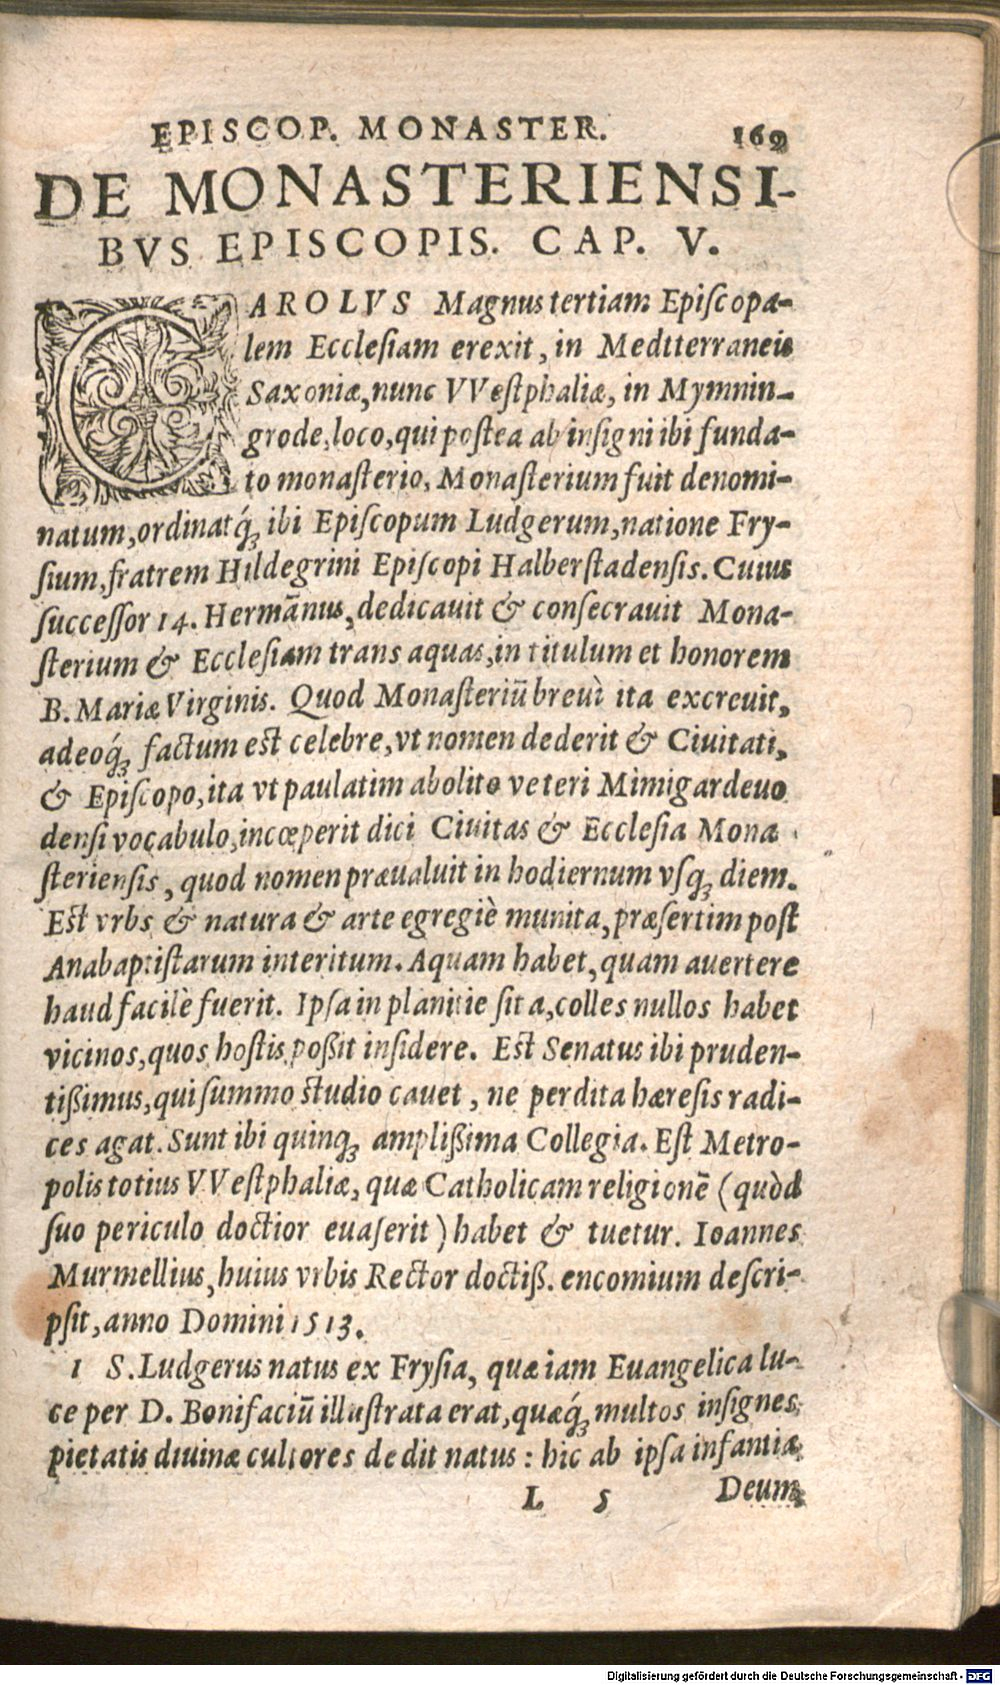 EPISCOP. MONASTER. 169
DE MONASTERIENSI-
BVS EPISCOPIS. CAP. V.
CAROLVS Magnus tertiam Epiſcopa-
lem Eccleſiam erexit, in Medtterraneis
Saxoniæ, nunc VVeſtphaliæ, in Mymnin-
grode, loco, qui poſtea ab inſigni ibi funda-
to monaſterio, Monaſterium fuit denomi-
natum, ordinatq́; ibi Epiſcopum Ludgerum, natione Fry-
ſium, fratrem Hildegrini Epiſcopi Halberſtadenſis. Cuius
ſucceſſor 14. Hermānus, dedicavit & conſecravit Mona-
ſterium & Eccleſiam trans aquas, in titulum et honorem
B. Mariæ Virginis. Quod Monaſteriū breuì ita excreuit,
adeoq́; factum est celebre, vt nomen dederit & Ciuitati,
& Epiſcopo, ita vt paulatim abolito veteri Mimigardeuo
denſi vocabulo, incœperit dici Ciuitas & Eccleſia Mona
ſterienſis, quod nomen præualuit in hodiernum vſq; diem.
Est vrbs & natura & arte egregiè munita, præſertim poſt
Anabaptiſtarum interitum. Aquam habet, quam auertere
haud facilè fuerit. Ipſa in planitie ſita, colles nullos habet
vicinos, quos hoſtis poßit inſidere. Est Senatus ibi pruden-
tißimus, qui ſummo studio cauet, ne perdita hæreſis radi-
ces agat. Sunt ibi quinq; amplißima Collegia. Eſt Metro-
polis totius VVeſtphaliæ, quæ Catholicam religionē (quòd
ſuo periculo doctior euaſerit) habet & tuetur. Ioannes
Murmellius, huius vrbis Rector doctiß. encomium deſcri-
pſit, anno Domini 1513.
1 S. Ludgerus natus ex Fryſia, quæ iam Euangelica lu-
ce per D. Bonifaciū illuſtrata erat, quæq́; multos inſignes
pietatis diuinæ cultores dedit natus: hic ab ipſa infantia
L 5 Deum
Digitalisierung gefördert durch die Deutsche Forschungsgemeinschaft - DFG